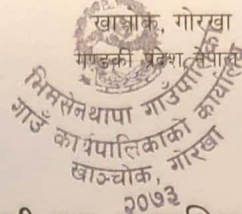 खाञ्चोक, गोरखा
गण्डकी प्रदेश, नेपाल
भिमसेनथापा गाउँपालिका
गाउँ कार्यपालिकाको कार्यालय
खाञ्चोक, गोरखा
२०७३